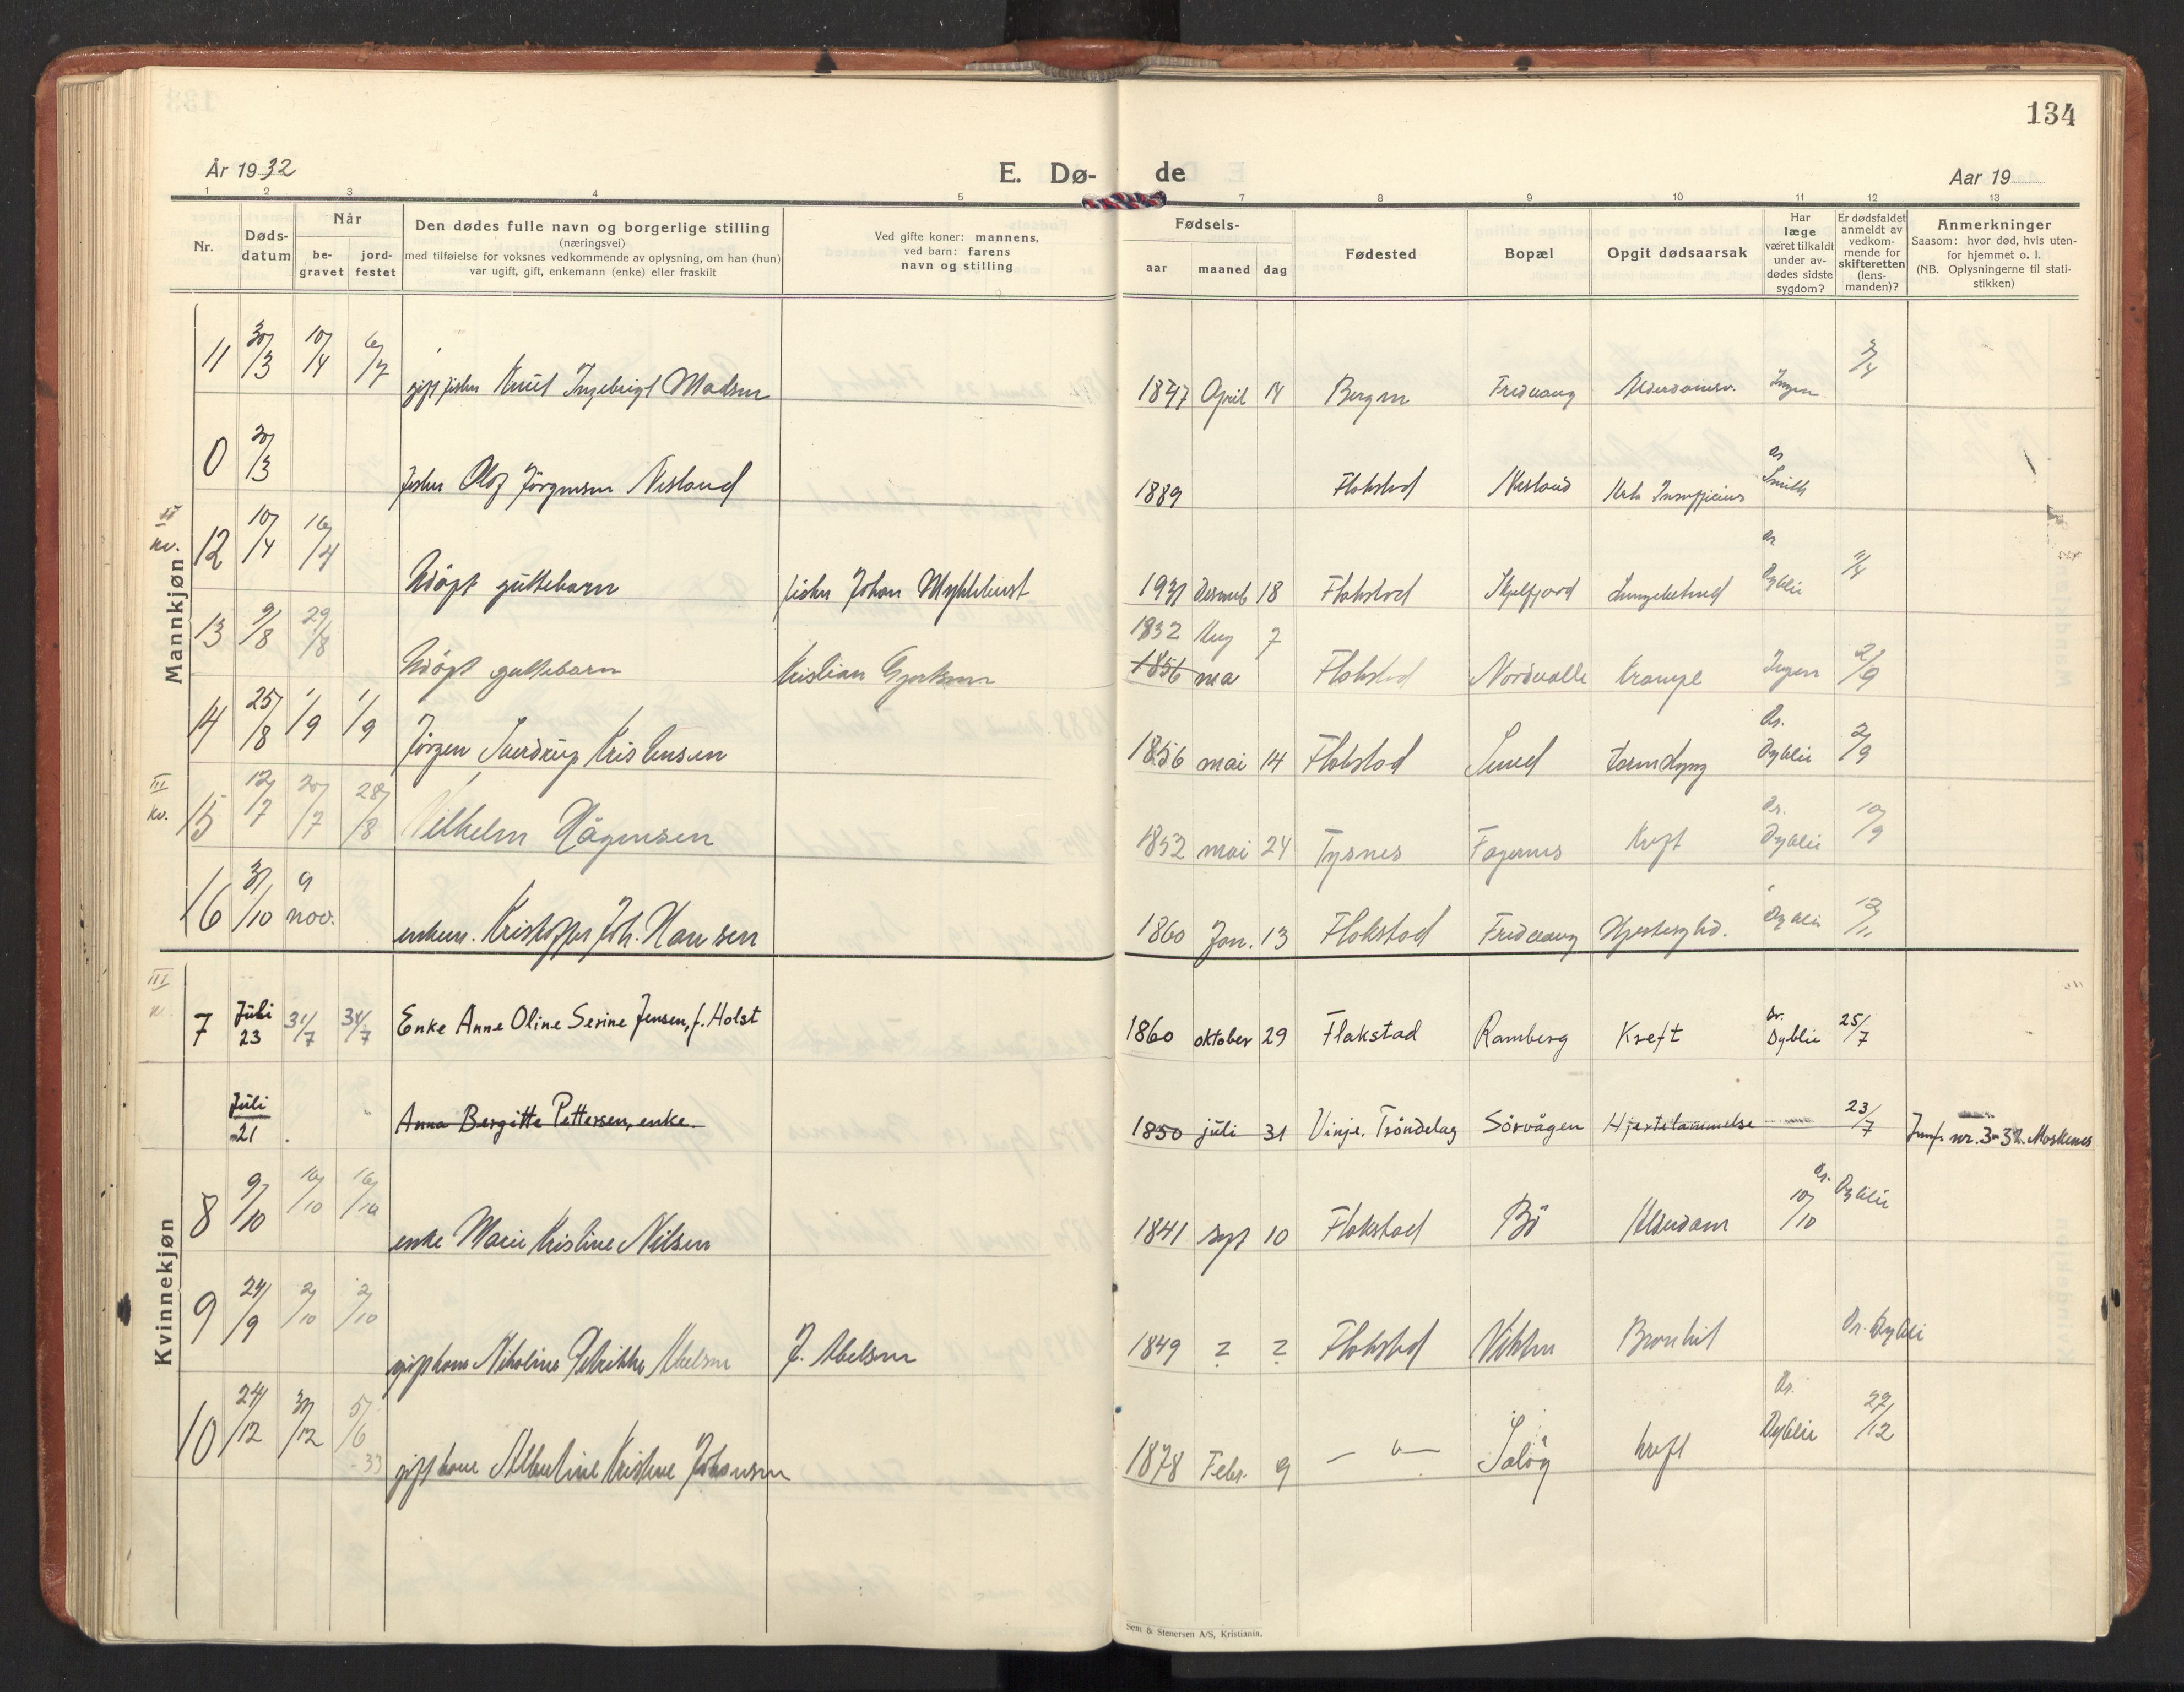 134
År 1932
E. Dø-
de
Aar 19
1 2 3 4 5 7 8 9 10 11 12 13
Nr.
Døds-
datum
Når
be-
gravet
jord-
festet
Den dødes fulle navn og borgerlige stilling
(næringsvei)
med tilføielse for voksnes vedkommende av oplysning, om han (hun)
var ugift, gift, enkemann (enke) eller fraskilt
Ved gifte koner: mannens,
ved barn: farens
navn og stilling
Fødsels-
aar maaned dag
Fødested
Bopæl
Opgit dødsaarsak
Har
læge
været tilkaldt
under av-
dødes sidste
sygdom?
Er dødsfaldet
anmeldt av
vedkom-
mende for
skifteretten
(lens-
manden)?
Anmerkninger
Saasom: hvor død, hvis uten-
for hjemmet o. l.
(NB. Oplysningerne til stati-
stikken)
Mannkjøn
11 30/3 10/4 gift fisker Knut Ingebrigt Madsen 1847 April 14 Bergen Fredvang Alderdomsv. Ingen 2/4
0 30/3 fisker Olaf Jörgensen Nesland 1889 Flakstad Nesland Dr Smith
II kv.
12 10/4 16/4 Udöpt guttebarn fisker Johan Myklebust 1931 Desemb 18 Flakstad Skjelfjord Lungebetend Dr Dyblie 11/4
13 9/8 29/8 Udöpt guttebarn Kristian 1932 Aug 7 Flakstad Nordvalle Krampe Ingen 2/9
1856 ma
14 25/8 1/9 1/9 Jörgen Sverdrup Kristensen 1856 mai 14 Flakstad Sund tarmslyng Dr. Dyblie 2/9
III kv.
15 12/7 20/7 28/8 Vilhelm Hågensen 1852 mai 24 Tysnes Fagernes Kreft Dr. Dyblie 10/9
16 31/10 9 nov. enkem. Kristoffer Joh. Hansen 1860 Jan. 13 Flakstad Fredvang Hjertesykd. Dyblie 12/11
Kvinnekjøn
III
7 Juli 23 31/7 31/7 Enke Anne Oline Serine Jensen, f. Holst 1860 oktober 29 Flakstad Ramberg Kreft Dr. Dyblie 25/7
Juli 21 Anna Bergitte Pettersen, enke. 1850 juli 31 Vinje. Tröndelag Sörvågen Hjertelammelse 23/7 Jmf. nr. 3 - 32. Moskenes
8 9/10 16/10 16/10 enke Marie Kristine Nilsen 1841 sept 10 Flakstad Bö Alderdom Dr. Dyblie 10/10
9 24/9 2/10 2/10 gift kone Nikoline Petrikke Abelsen J. Abelsen 1849 ? ? Flakstad Vikten Bronkit Dr. Dyblie
10 24/12 31/12 5/6 -33 gift kone Albertine Kristine Johansen 1878 Febr. 9 — " — kreft Dr. Dyblie 27/12
Sem & Stenersen A/S, Kristiania.